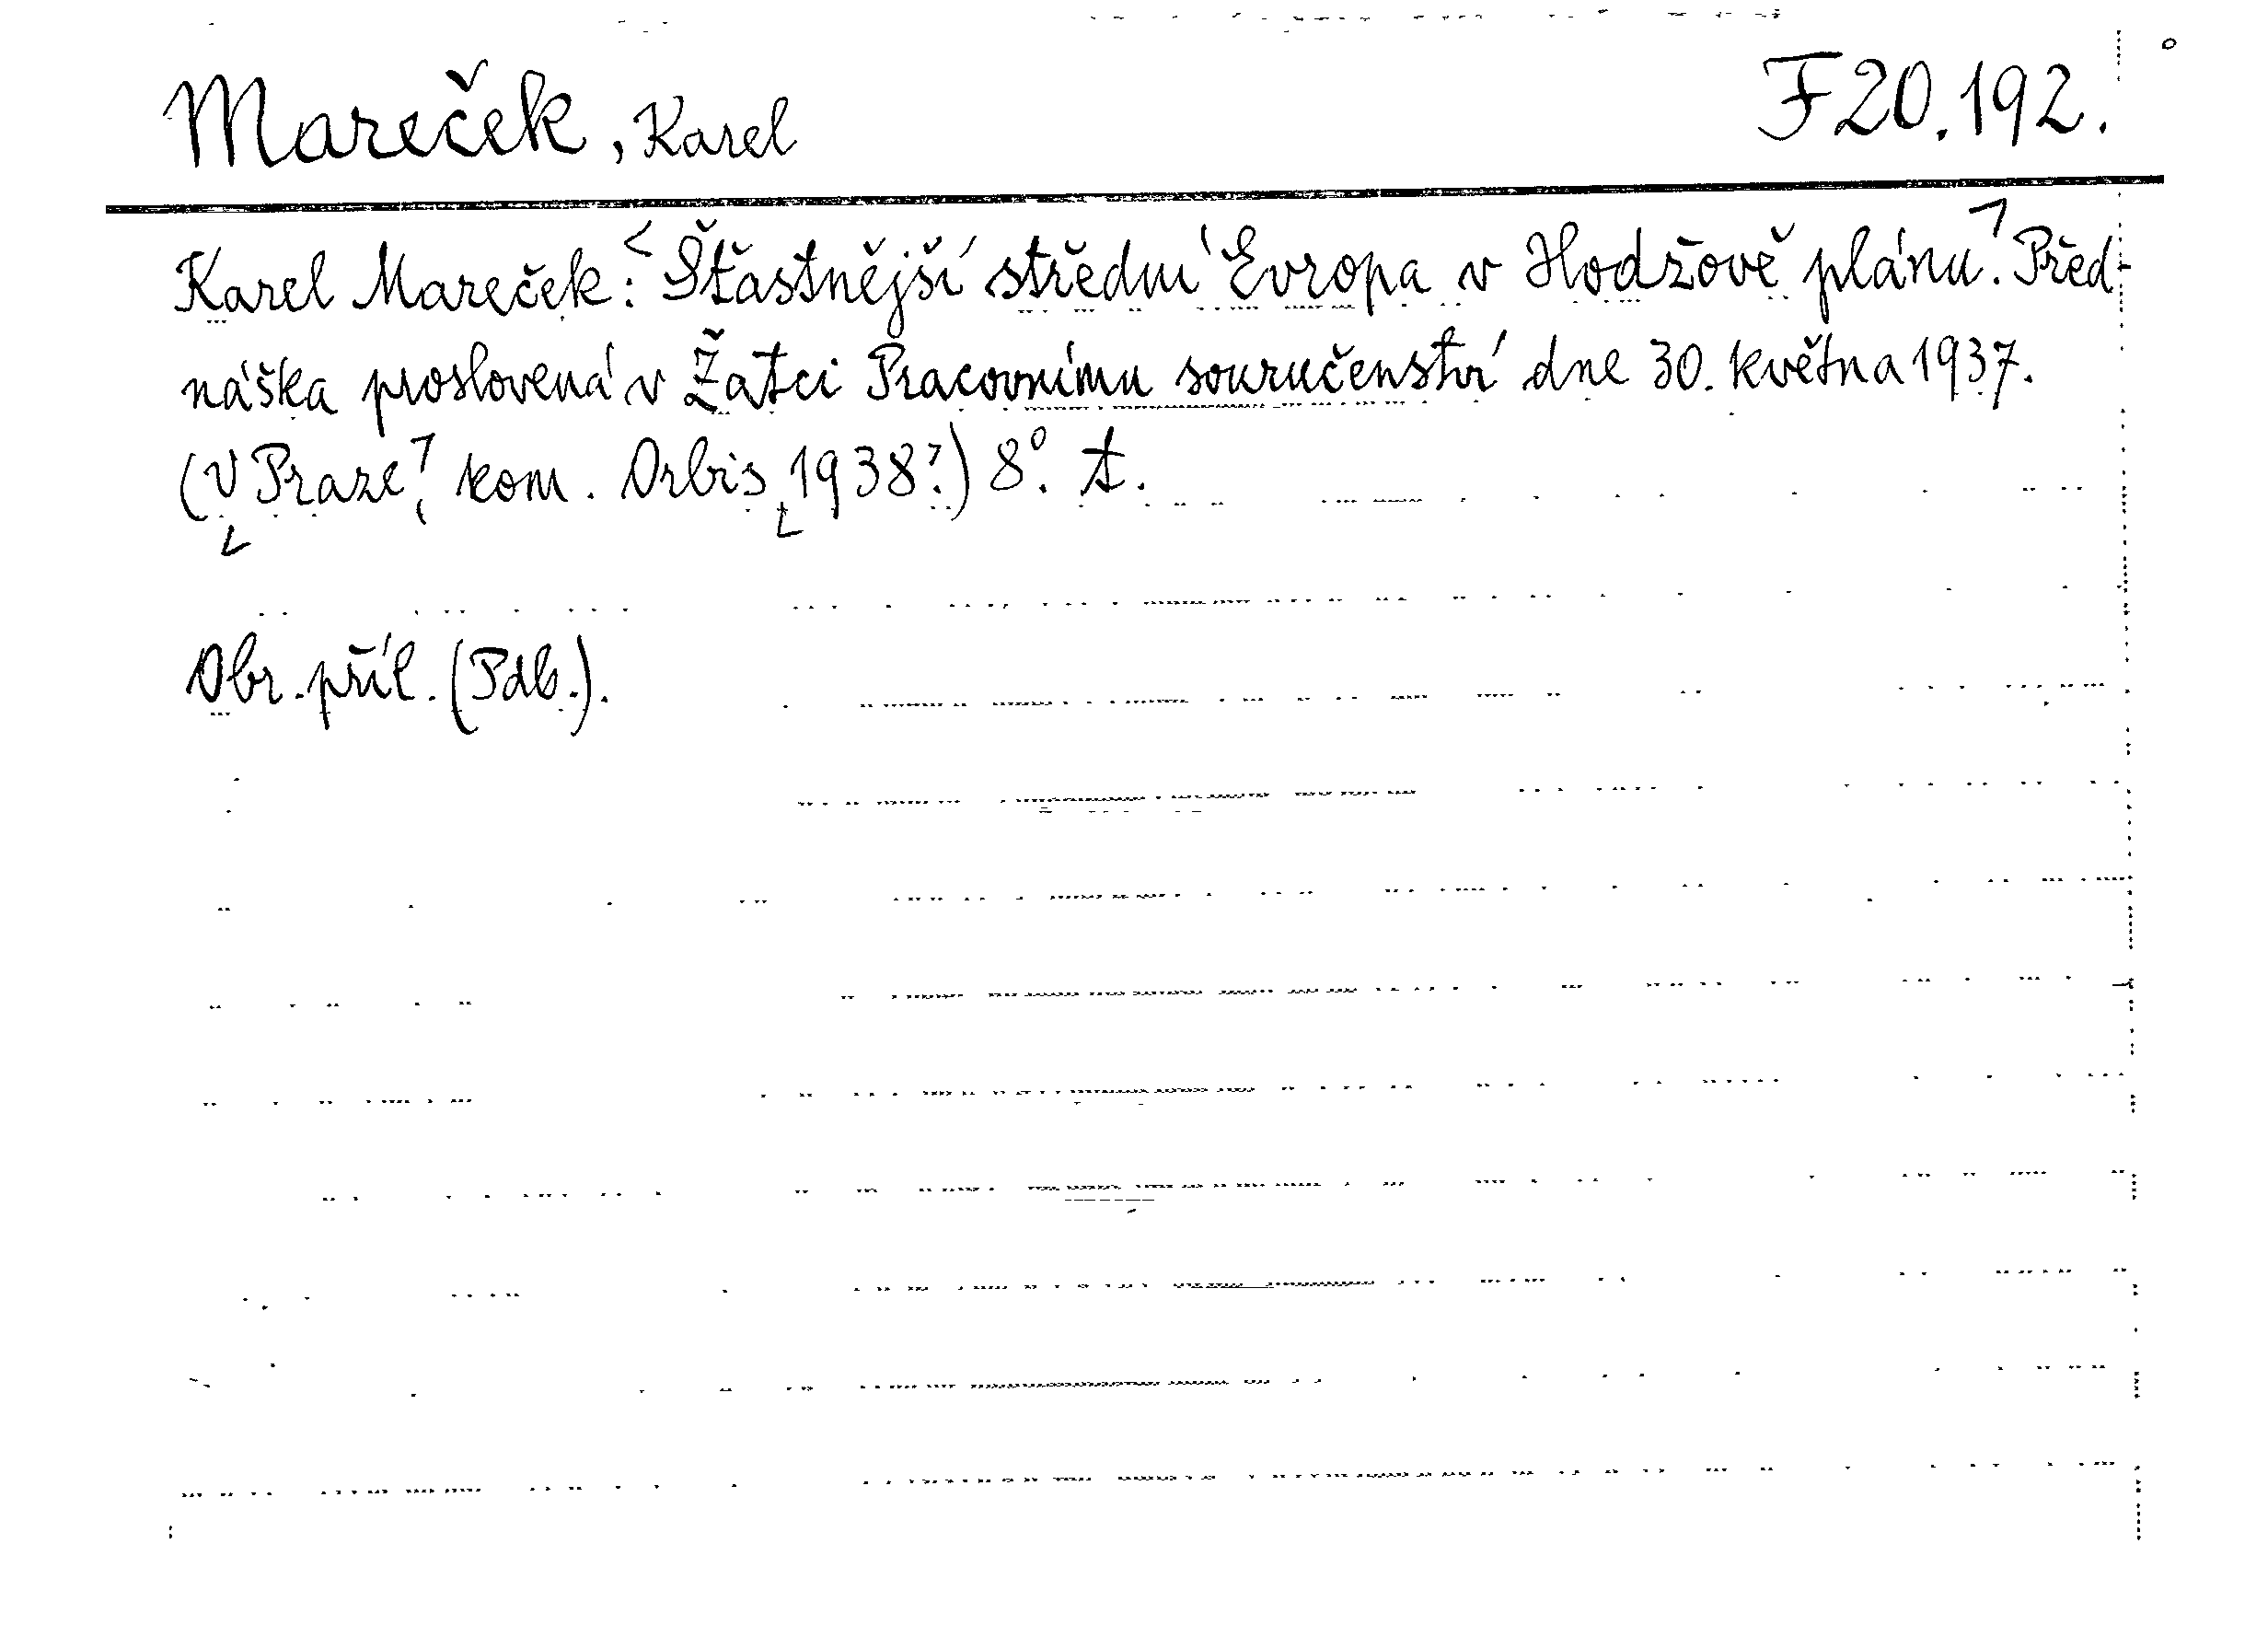 Mareček, Karel F 20.192.
Karel Mareček: Šťastnější střední Evropa v Hodžově plánu. Před-
náška proslovená v Žatci Pracovnímu souručenství dne 30. května 1937.
(V Praze, kom. Orbis 1938?) 8°. A.
Obr. příl. (Pdb.).